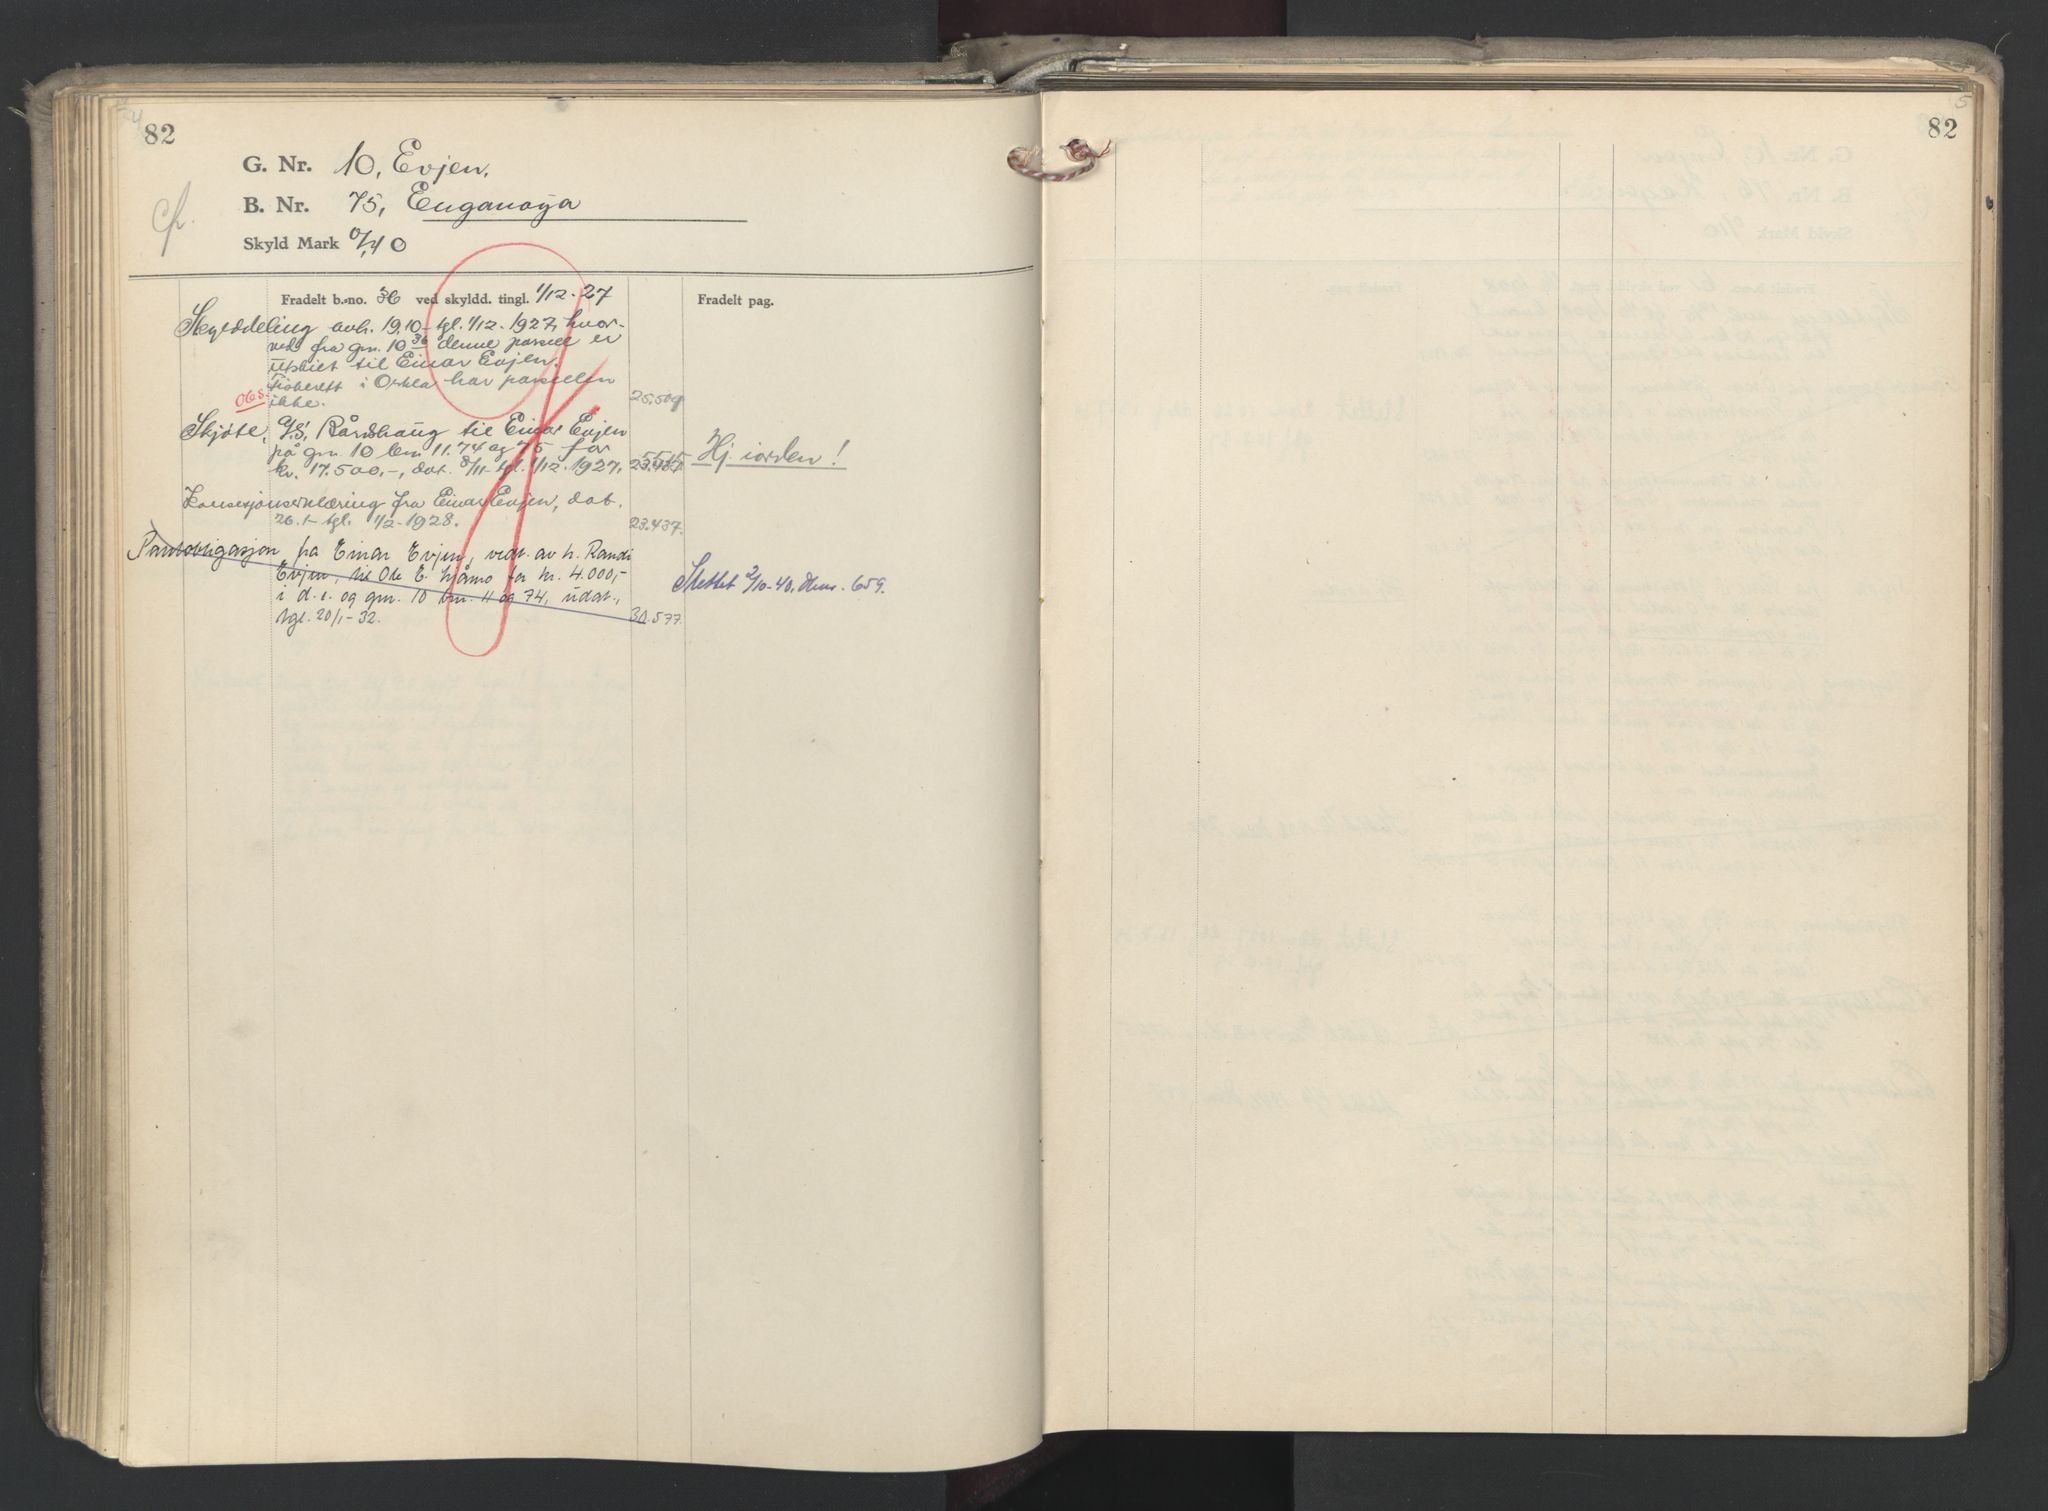 82
G. Nr. 10, Evjen.
B. Nr. 75, Enganøya
Skyld Mark 0,40
Fradelt b.-no. 36 ved skyldd. tingl. 1/12-27
Fradelt pag.
Skylddeling avh. 19.10- tgl. 1/12-1927, hvor-
ved fra gnr. 10 36 denne parsell er
utskilt til Einar Evjen.
Fiskerett i Orkla har parsellen
ikke. 25.509
Obs.
Skjøte, Rårdshaug til Einar Evjen
på gnr. 10 bnr. 11. 74 og 75 for
kr. 17.500,-, dat. 8/11- tgl. 1/12-1927.
Hj. i orden!
Konsesjonserklæring fra Einar Evjen, dat.
26.1- tgl. 1/2-1928. 23.437.
Pantobligasjon fra Einar Evjen, vedt. av h. Randi
Evjen, til Ole E. for kr. 4.000,-
i d. e. og gnr. 10 bnr. 11 og 74, udat.,
tgl. 20/1-32. 30.577.
Slettet 2/10-40, dnr. 659.
82